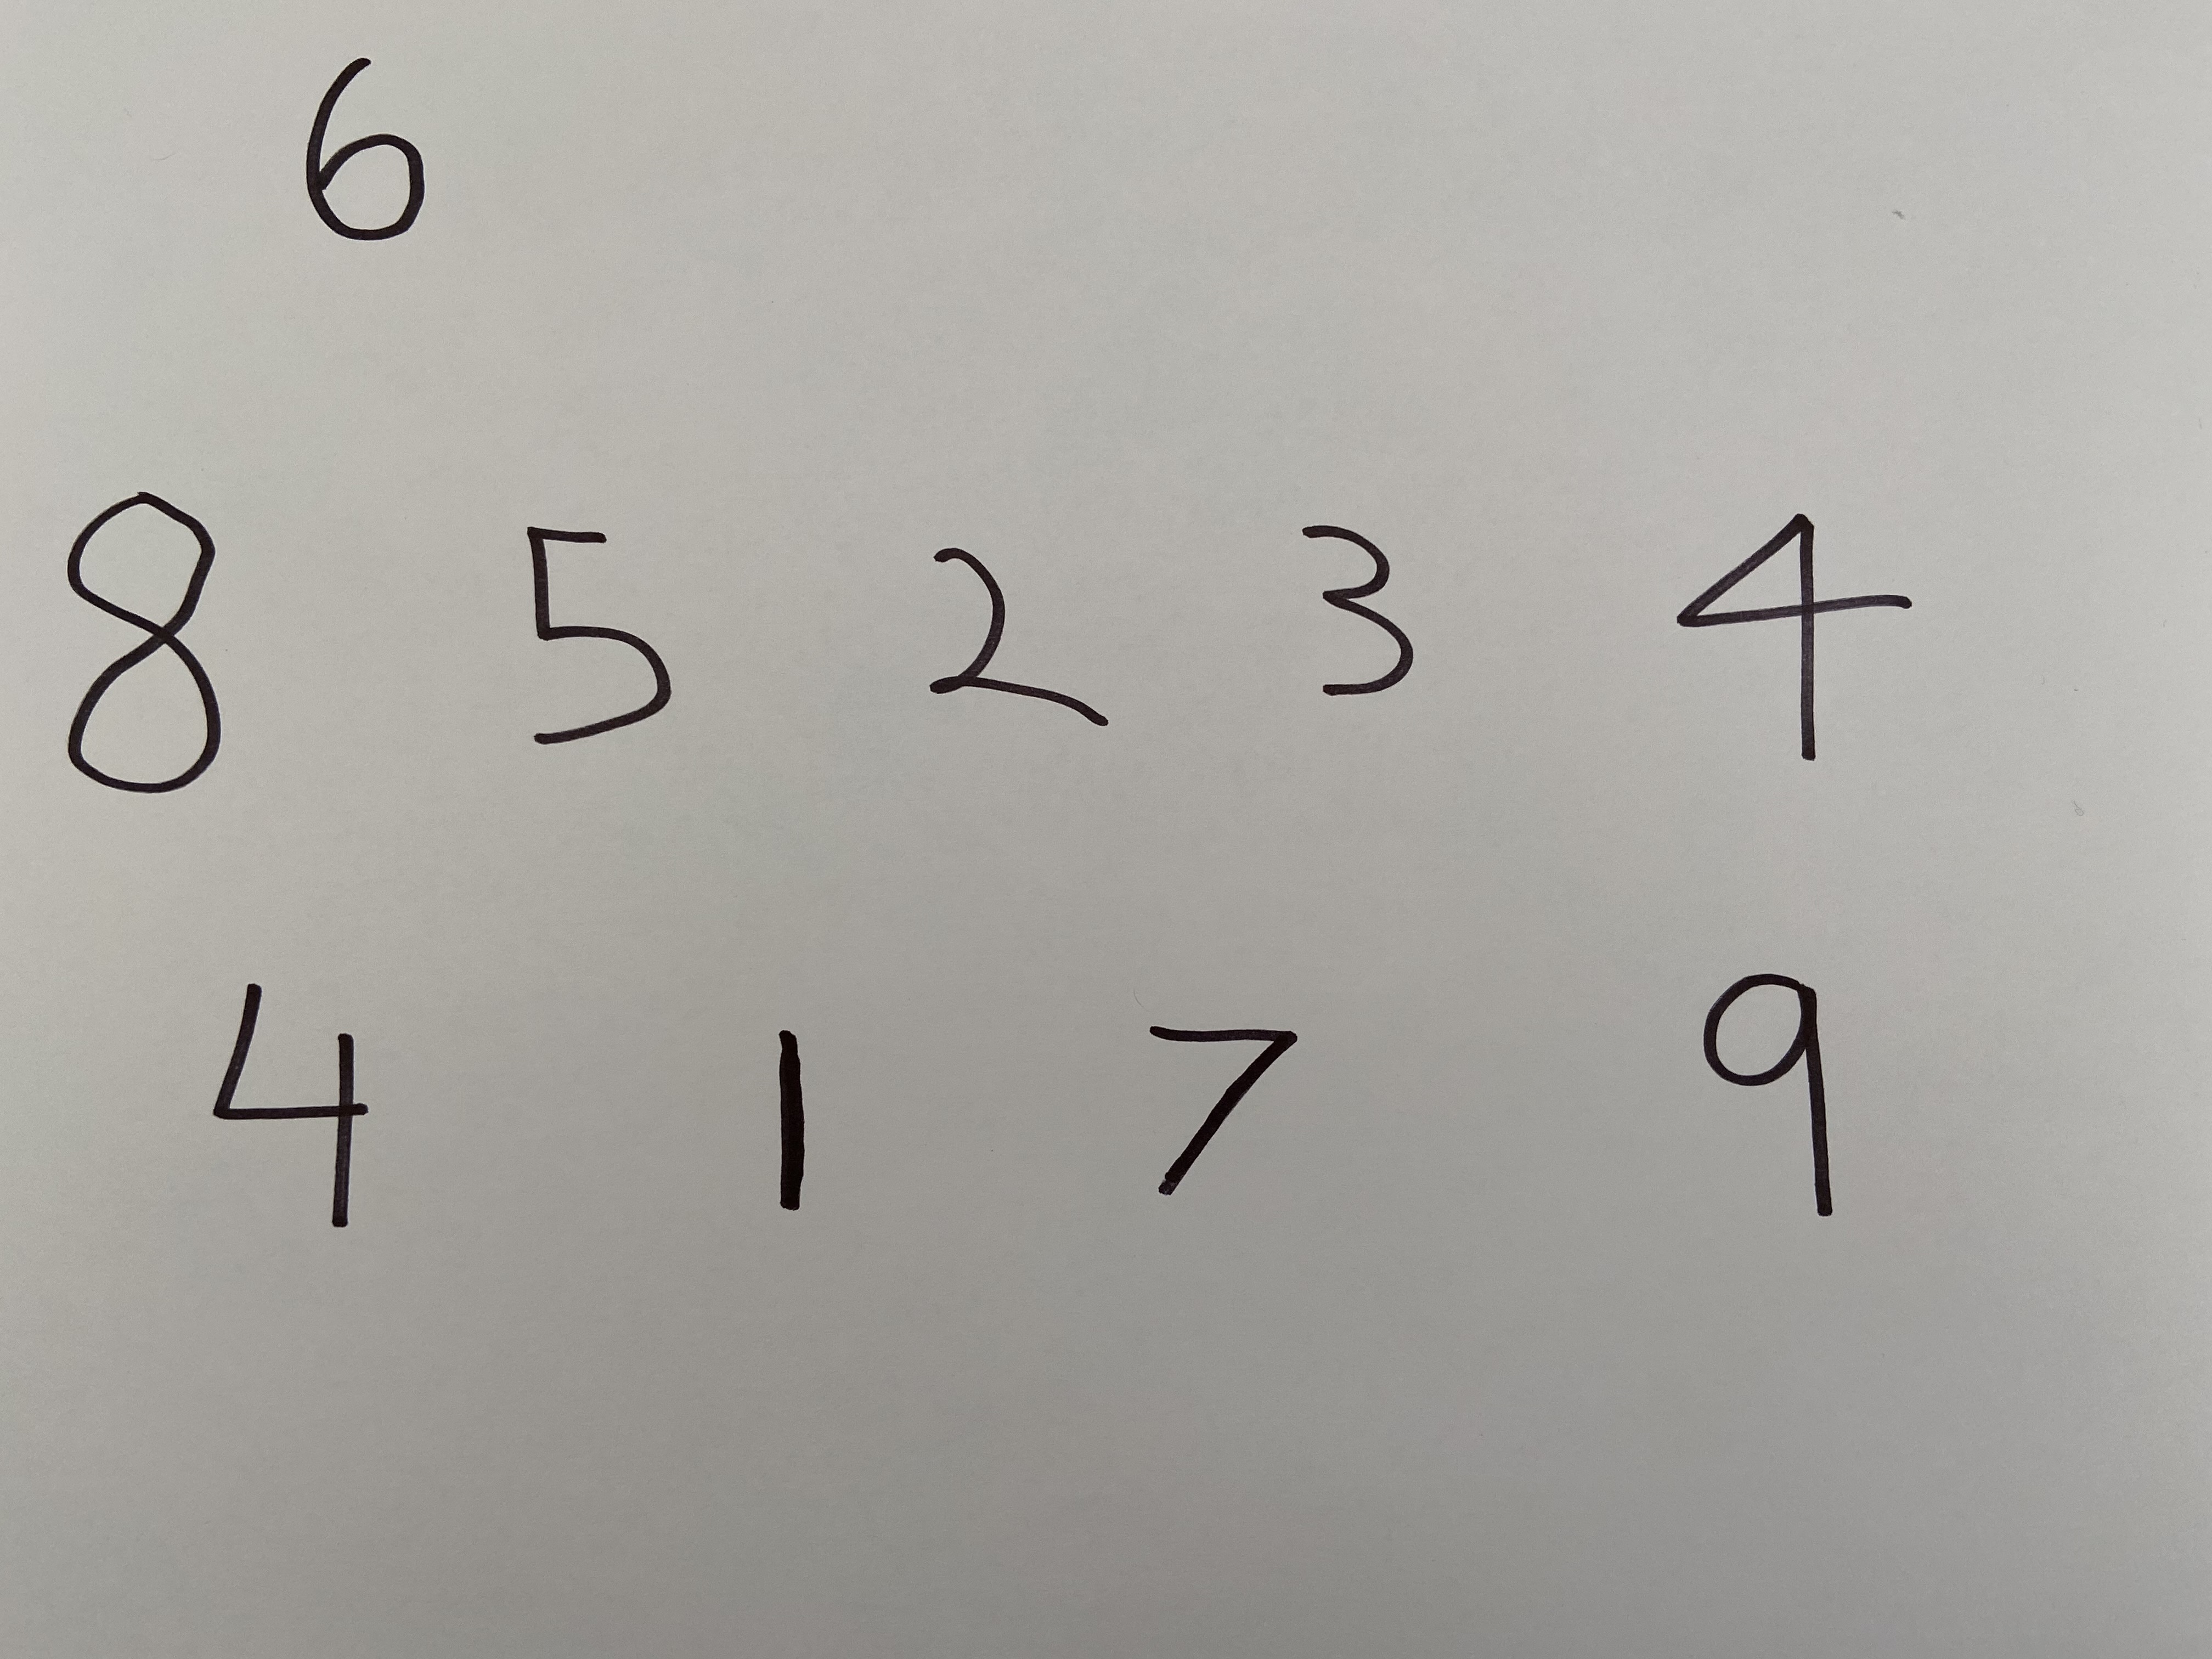 6
8 5 2 3 4
4 1 7 9